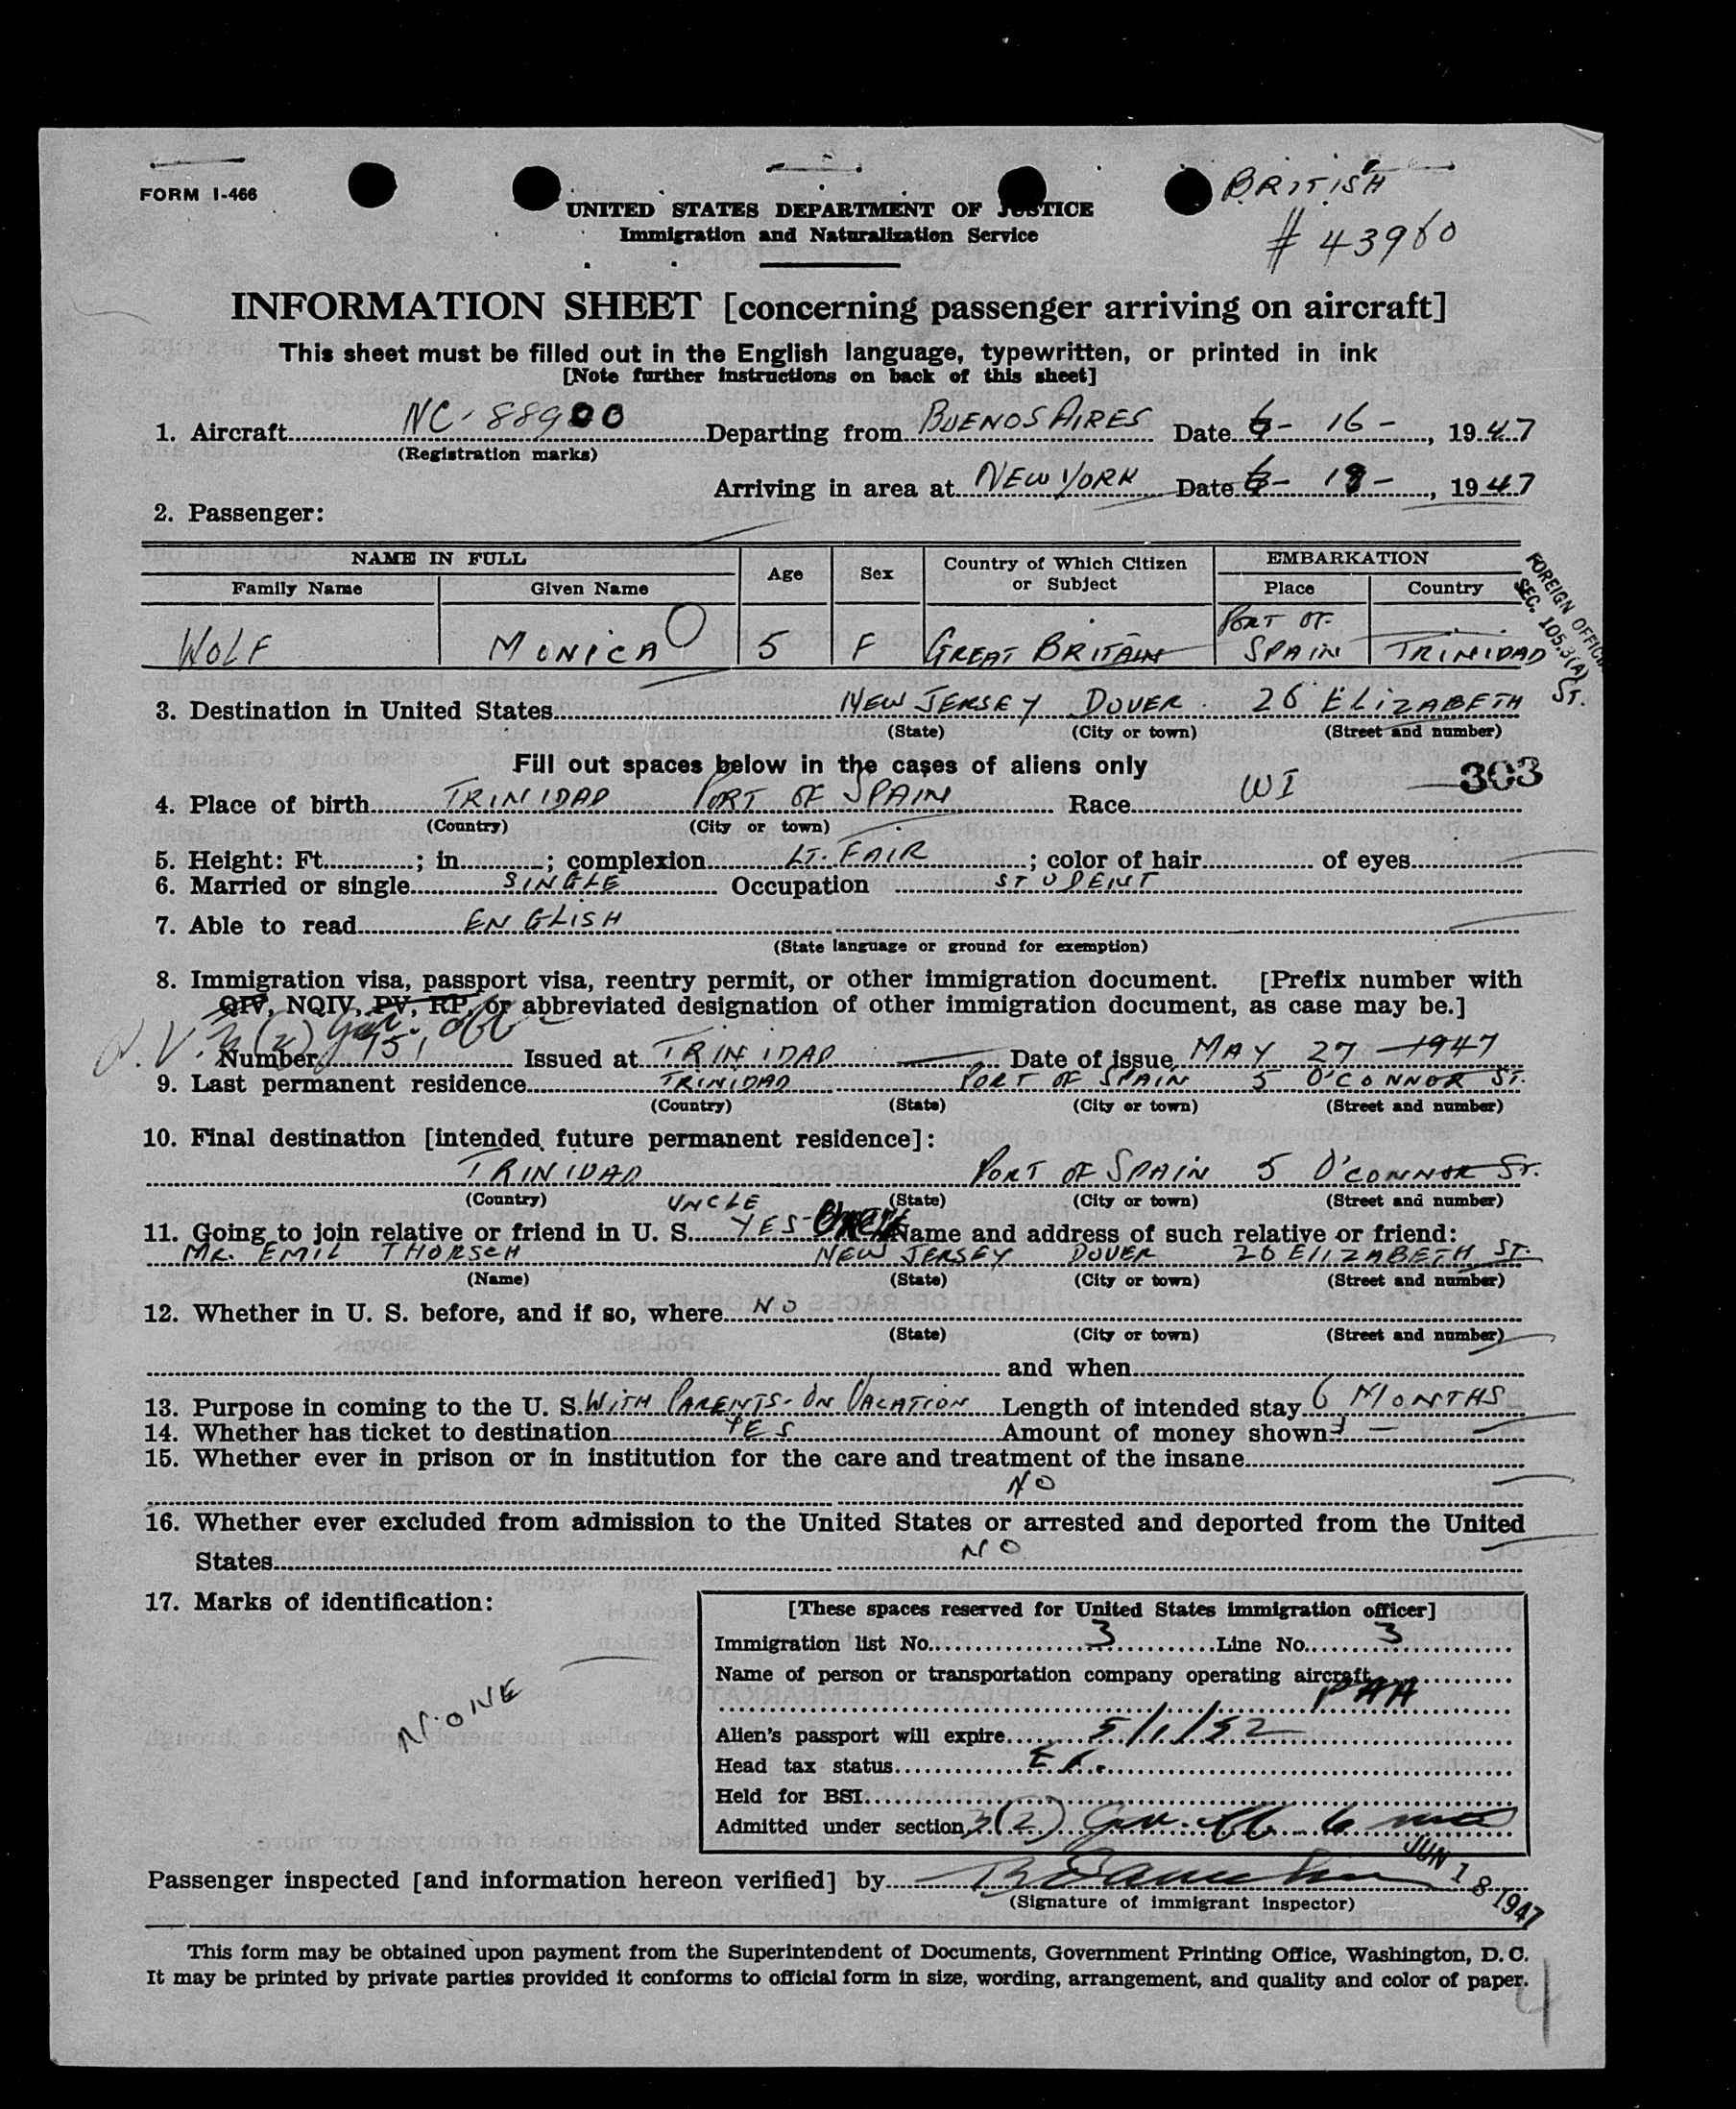 FORM I-466
UNITED STATES DEPARTMENT OF JUSTICE
Immigration and Naturalization Service
BRITISH
# 43960
INFORMATION SHEET [concerning passenger arriving on aircraft]
This sheet must be filled out in the English language, typewritten, or printed in ink
[Note further instructions on back of this sheet]
1. Aircraft NC-88900 Departing from BUENOS AIRES Date 6- 16- , 1947
(Registration marks)
Arriving in area at NEW YORK Date 6- 18- , 1947
2. Passenger:
NAME IN FULL Age Sex Country of Which Citizen or Subject EMBARKATION
Family Name Given Name Place Country
WOLF MONICA 5 F GREAT BRITAIN PORT OF SPAIN TRINIDAD
FOREIGN OFFICI
SEC. 105.3(A)
3. Destination in United States NEW JERSEY DOVER 26 ELIZABETH ST.
(State) (City or town) (Street and number)
Fill out spaces below in the cases of aliens only
303
4. Place of birth TRINIDAD PORT OF SPAIN Race WI
(Country) (City or town)
5. Height: Ft. ; in. ; complexion LT. FAIR ; color of hair of eyes
6. Married or single SINGLE Occupation STUDENT
7. Able to read ENGLISH
(State language or ground for exemption)
8. Immigration visa, passport visa, reentry permit, or other immigration document. [Prefix number with
QIV, NQIV, PV, RP, or abbreviated designation of other immigration document, as case may be.]
Number 151 Issued at TRINIDAD Date of issue MAY 27 1947
9. Last permanent residence TRINIDAD PORT OF SPAIN 5 O'CONNOR ST.
(Country) (State) (City or town) (Street and number)
10. Final destination [intended future permanent residence]:
TRINIDAD PORT OF SPAIN 5 O'CONNOR ST.
(Country) (State) (City or town) (Street and number)
UNCLE
11. Going to join relative or friend in U. S. YES- Name and address of such relative or friend:
MR. EMIL THORSCH NEW JERSEY DOVER 26 ELIZABETH ST.
(Name) (State) (City or town) (Street and number)
12. Whether in U. S. before, and if so, where NO
(State) (City or town) (Street and number)
and when
13. Purpose in coming to the U. S. WITH PARENTS- ON VACATION Length of intended stay 6 MONTHS
14. Whether has ticket to destination YES Amount of money shown
15. Whether ever in prison or in institution for the care and treatment of the insane
NO
16. Whether ever excluded from admission to the United States or arrested and deported from the United
States NO
17. Marks of identification:
NONE
[These spaces reserved for United States immigration officer]
Immigration list No. 3 Line No. 3
Name of person or transportation company operating aircraft
PAA
Alien's passport will expire 5/1/52
Head tax status
Held for BSI
Admitted under section 3(2) Gov. off. 6 mos
JUN 18 1947
Passenger inspected [and information hereon verified] by
(Signature of immigrant inspector)
This form may be obtained upon payment from the Superintendent of Documents, Government Printing Office, Washington, D. C.
It may be printed by private parties provided it conforms to official form in size, wording, arrangement, and quality and color of paper.
4